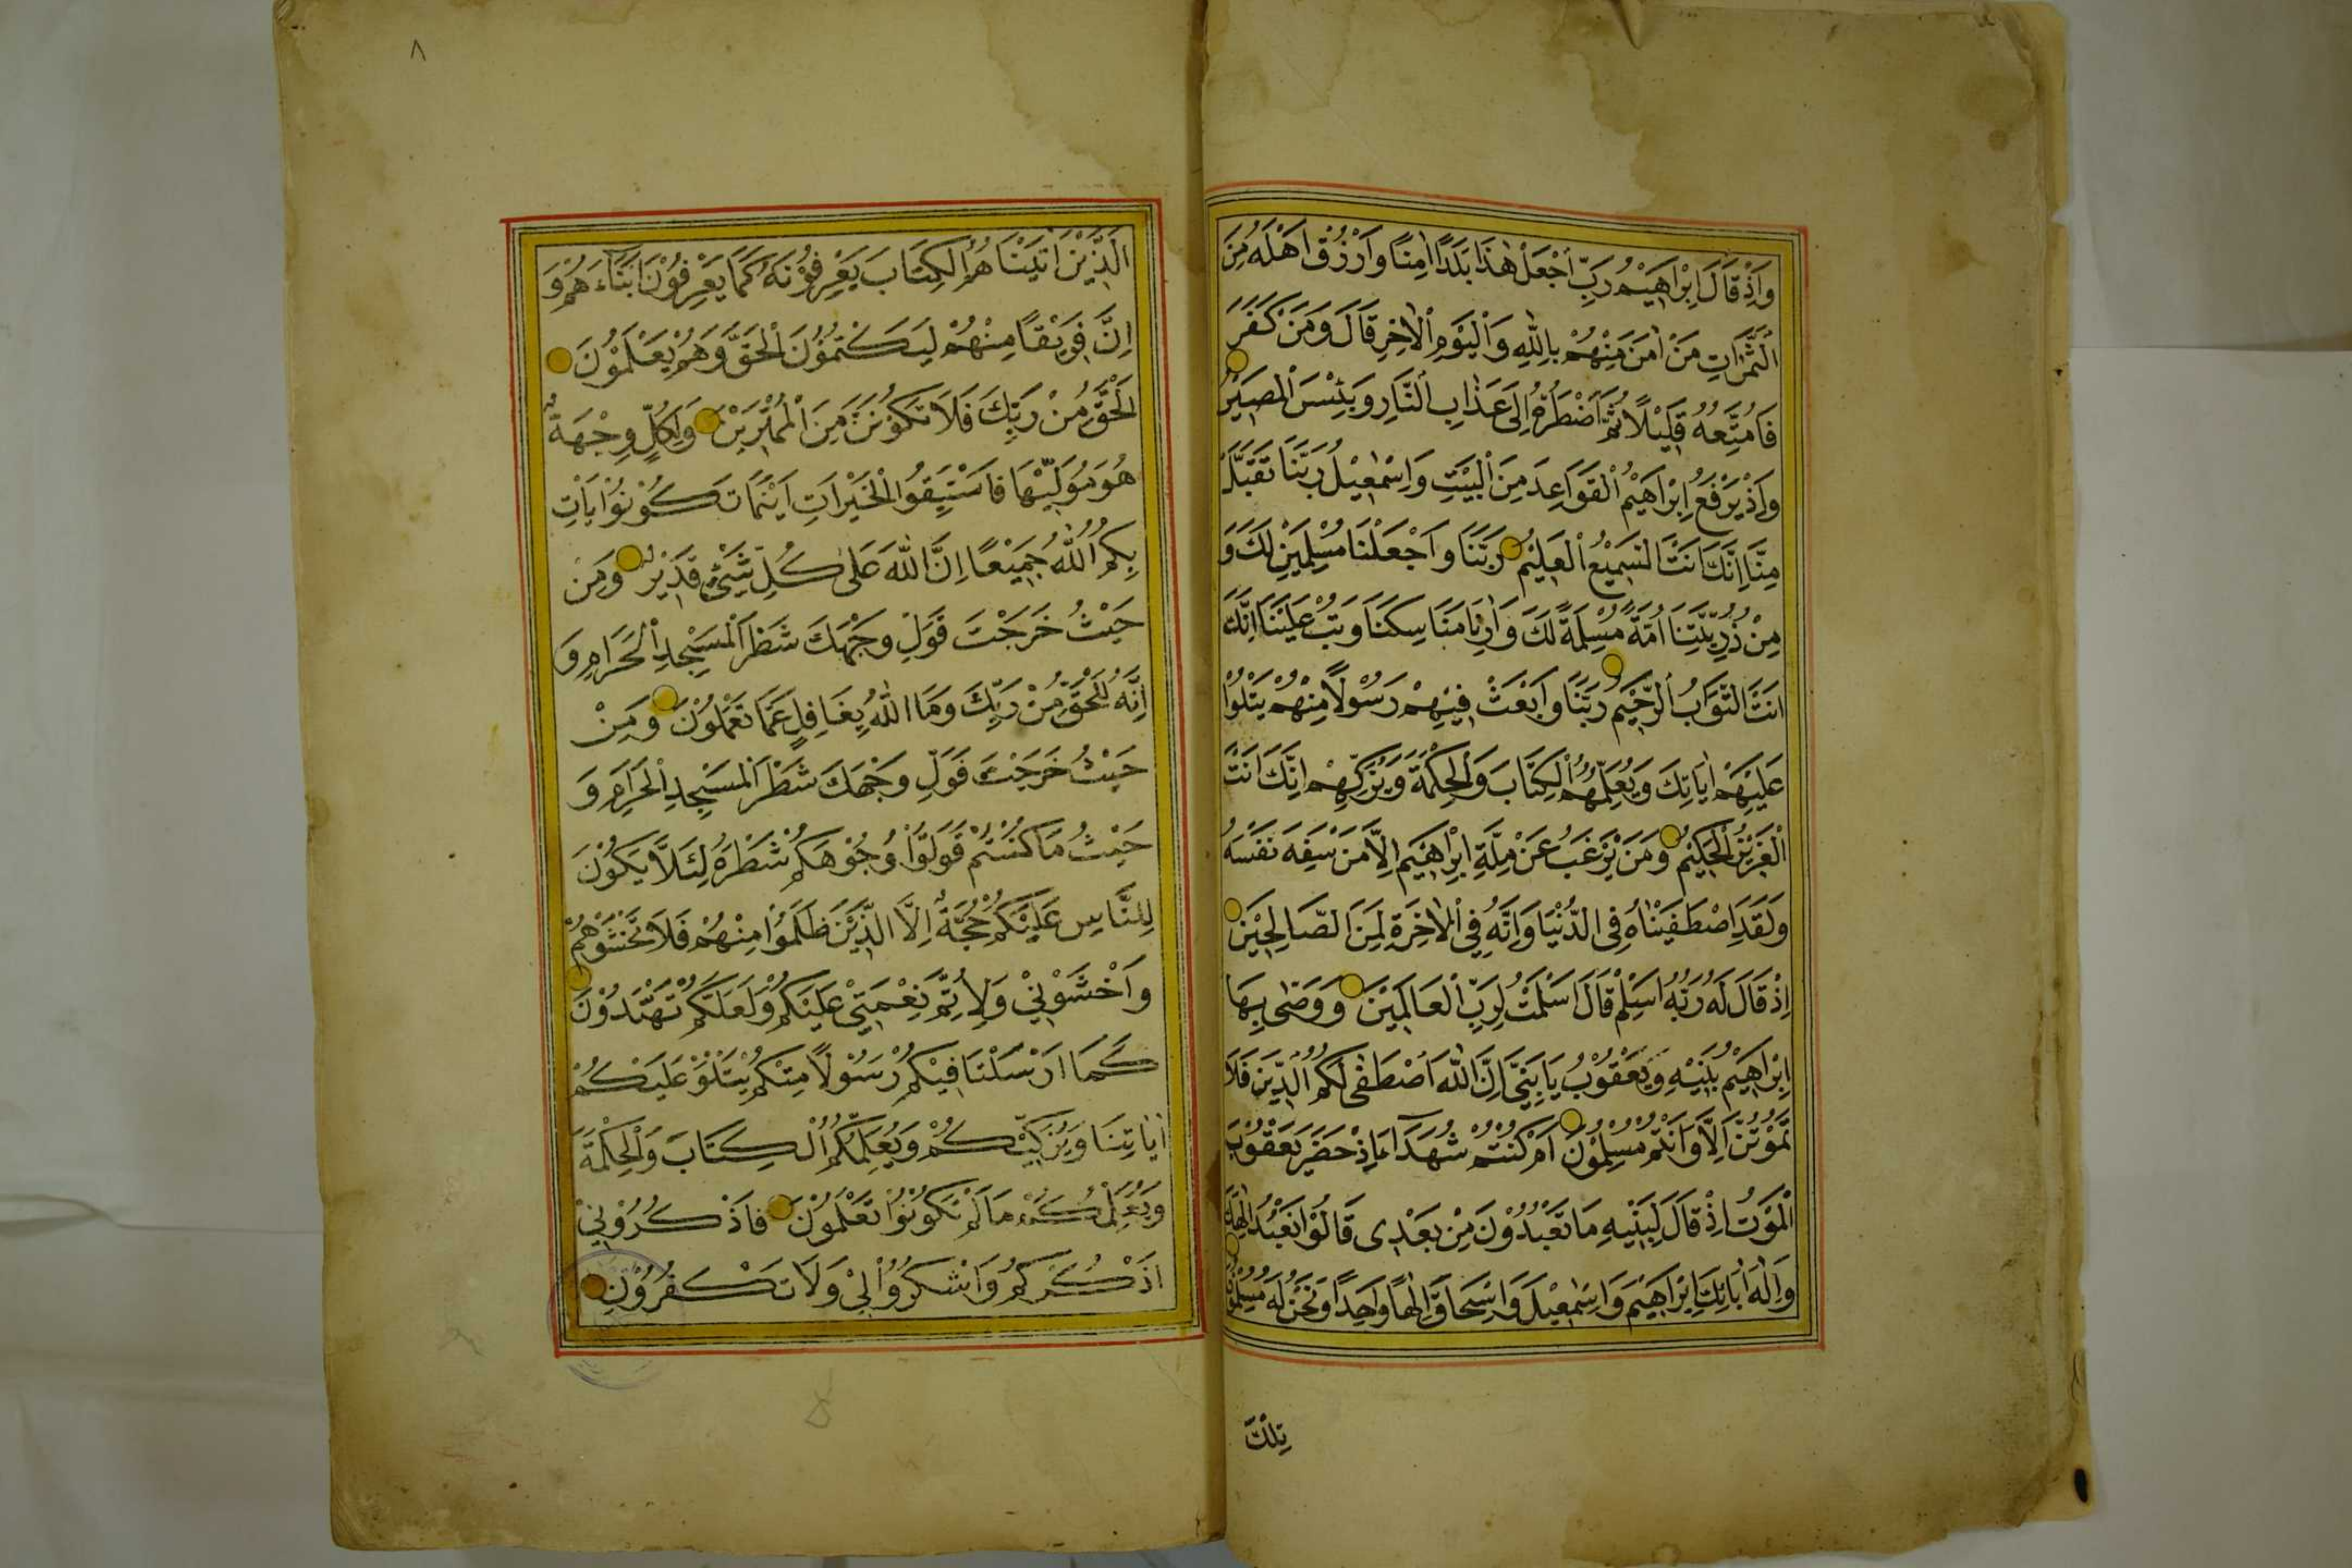 وَاِذْ قَالَ اِبْرَاهِيْمُ رَبِّ اجْعَلْ هٰذَا بَلَدًا اٰمِنًا وَارْزُقْ اَهْلَهُ مِنَ
الثَّمَرَاتِ مَنْ اٰمَنَ مِنْهُمْ بِاللّٰهِ وَالْيَوْمِ الْاٰخِرِ قَالَ وَمَنْ كَفَرَ
فَاُمَتِّعُهُ قَلِيْلًا ثُمَّ اَضْطَرُّهُ اِلٰى عَذَابِ النَّارِ وَبِئْسَ الْمَصِيْرُ
وَاِذْ يَرْفَعُ اِبْرَاهِيْمُ الْقَوَاعِدَ مِنَ الْبَيْتِ وَاِسْمٰعِيْلُ رَبَّنَا تَقَبَّلْ
مِنَّا اِنَّكَ اَنْتَ السَّمِيْعُ الْعَلِيْمُ رَبَّنَا وَاجْعَلْنَا مُسْلِمَيْنِ لَكَ وَ
مِنْ ذُرِّيَّتِنَا اُمَّةً مُسْلِمَةً لَكَ وَاَرِنَا مَنَاسِكَنَا وَتُبْ عَلَيْنَا اِنَّكَ
اَنْتَ التَّوَّابُ الرَّحِيْمُ رَبَّنَا وَابْعَثْ فِيْهِمْ رَسُوْلًا مِنْهُمْ يَتْلُوْا
عَلَيْهِمْ اٰيَاتِكَ وَيُعَلِّمُهُمُ الْكِتَابَ وَالْحِكْمَةَ وَيُزَكِّيْهِمْ اِنَّكَ اَنْتَ
الْعَزِيْزُ الْحَكِيْمُ وَمَنْ يَرْغَبُ عَنْ مِلَّةِ اِبْرَاهِيْمَ اِلَّا مَنْ سَفِهَ نَفْسَهُ
وَلَقَدِ اصْطَفَيْنَاهُ فِى الدُّنْيَا وَاِنَّهُ فِى الْاٰخِرَةِ لَمِنَ الصَّالِحِيْنَ
اِذْ قَالَ لَهُ رَبُّهُ اَسْلِمْ قَالَ اَسْلَمْتُ لِرَبِّ الْعَالَمِيْنَ وَوَصّٰى بِهَا
اِبْرَاهِيْمُ بَنِيْهِ وَيَعْقُوْبُ يَا بَنِىَّ اِنَّ اللّٰهَ اصْطَفٰى لَكُمُ الدِّيْنَ فَلَا
تَمُوْتُنَّ اِلَّا وَاَنْتُمْ مُسْلِمُوْنَ اَمْ كُنْتُمْ شُهَدَآءَ اِذْ حَضَرَ يَعْقُوْبَ
الْمَوْتُ اِذْ قَالَ لِبَنِيْهِ مَا تَعْبُدُوْنَ مِنْ بَعْدِى قَالُوْا نَعْبُدُ اِلٰهَكَ
وَاِلٰهَ اٰبَائِكَ اِبْرَاهِيْمَ وَاِسْمٰعِيْلَ وَاِسْحَاقَ اِلٰهًا وَاحِدًا وَنَحْنُ لَهُ مُسْلِمُوْنَ
تِلْكَ
٨
الَّذِيْنَ اٰتَيْنَاهُمُ الْكِتَابَ يَعْرِفُوْنَهُ كَمَا يَعْرِفُوْنَ اَبْنَآءَهُمْ وَ
اِنَّ فَرِيْقًا مِنْهُمْ لَيَكْتُمُوْنَ الْحَقَّ وَهُمْ يَعْلَمُوْنَ
اَلْحَقُّ مِنْ رَبِّكَ فَلَا تَكُوْنَنَّ مِنَ الْمُمْتَرِيْنَ وَلِكُلٍّ وِجْهَةٌ
هُوَ مُوَلِّيْهَا فَاسْتَبِقُوا الْخَيْرَاتِ اَيْنَمَا تَكُوْنُوْا يَاْتِ
بِكُمُ اللّٰهُ جَمِيْعًا اِنَّ اللّٰهَ عَلٰى كُلِّ شَيْءٍ قَدِيْرٌ وَمِنْ
حَيْثُ خَرَجْتَ فَوَلِّ وَجْهَكَ شَطْرَ الْمَسْجِدِ الْحَرَامِ وَ
اِنَّهُ لَلْحَقُّ مِنْ رَبِّكَ وَمَا اللّٰهُ بِغَافِلٍ عَمَّا تَعْمَلُوْنَ وَمِنْ
حَيْثُ خَرَجْتَ فَوَلِّ وَجْهَكَ شَطْرَ الْمَسْجِدِ الْحَرَامِ وَ
حَيْثُ مَا كُنْتُمْ فَوَلُّوْا وُجُوْهَكُمْ شَطْرَهُ لِئَلَّا يَكُوْنَ
لِلنَّاسِ عَلَيْكُمْ حُجَّةٌ اِلَّا الَّذِيْنَ ظَلَمُوْا مِنْهُمْ فَلَا تَخْشَوْهُمْ
وَاخْشَوْنِيْ وَلِاُتِمَّ نِعْمَتِيْ عَلَيْكُمْ وَلَعَلَّكُمْ تَهْتَدُوْنَ
كَمَا اَرْسَلْنَا فِيْكُمْ رَسُوْلًا مِنْكُمْ يَتْلُوْ عَلَيْكُمْ
اٰيَاتِنَا وَيُزَكِّيْكُمْ وَيُعَلِّمُكُمُ الْكِتَابَ وَالْحِكْمَةَ
وَيُعَلِّمُكُمْ مَا لَمْ تَكُوْنُوْا تَعْلَمُوْنَ فَاذْكُرُوْنِيْ
اَذْكُرْكُمْ وَاشْكُرُوْا لِيْ وَلَا تَكْفُرُوْنِ